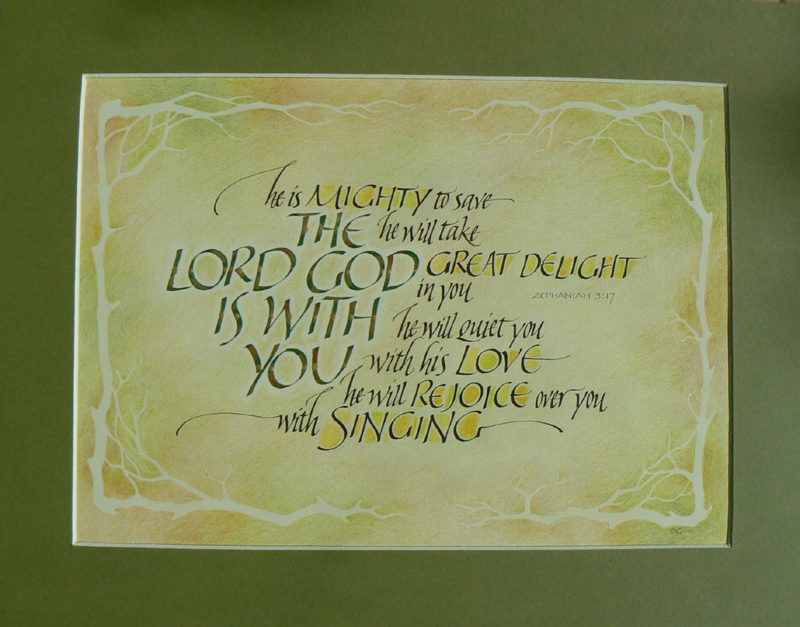 he is MIGHTY to save
THE he will take
LORD GOD GREAT DELIGHT
in you
ZEPHANIAH 3:17
IS WITH he will quiet you
YOU with his LOVE
he will REJOICE over you
with SINGING